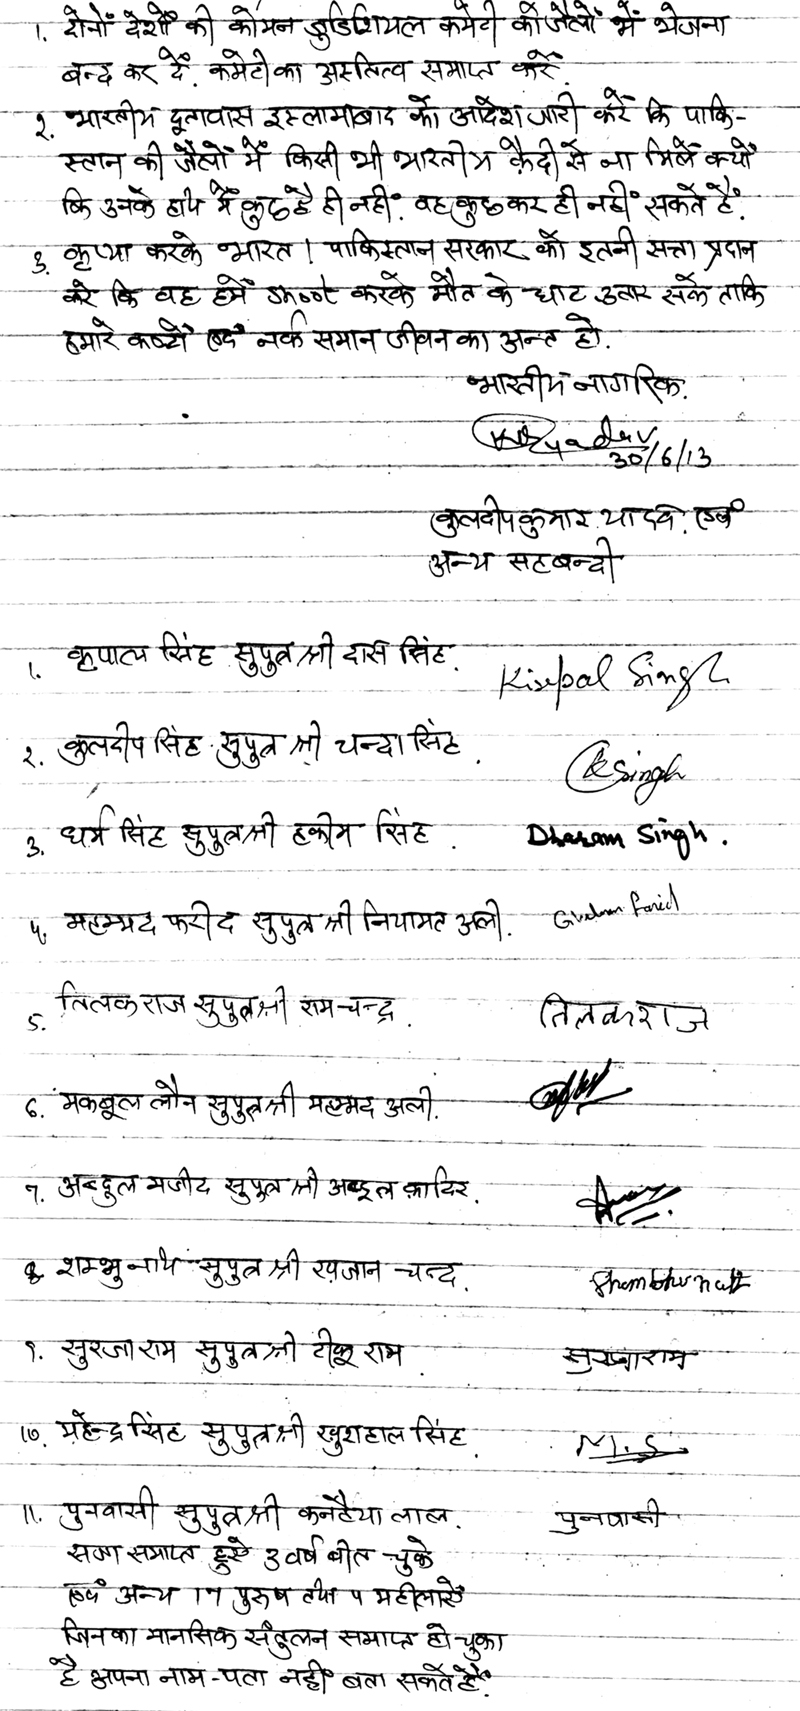 1. दोनों देशों की कोमन जुडिशियल कमेटी को जैलों में भेजना
बन्द कर दें. कमेटी का अस्तित्व समाप्त करें.
२. भारतीय दूतावास इस्लामाबाद को आदेश जारी करें कि पाकि-
स्तान की जैलों में किसी भी भारतीय क़ैदी से ना मिलें क्यों
कि उनके हाथ में कुछ है ही नहीं. वह कुछ कर ही नहीं सकते हैं.
३. कृप्या करके भारत / पाकिस्तान सरकार को इतनी सत्ता प्रदान
करे कि वह हमें shoot करके मौत के घाट उतार सकें ताकि
हमारे कष्टों एवं नर्क समान जीवन का अन्त हो.
भारतीय नागरिक.
30/6/13
कुलदीप कुमार यादव. एवं
अन्य सहबन्दी
1. कृपाल सिंह सुपुत्र श्री दास सिंह. Kirpal Singh
२. कुलदीप सिंह सुपुत्र श्री चन्दा सिंह. K Singh
3. धर्म सिंह सुपुत्र श्री हकीम सिंह. Dharam Singh.
५. महम्मद फरीद सुपुत्र श्री नियामत अली.
5. तिलक राज सुपुत्र श्री राम चन्द्र. तिलक राज
6. मकबूल लौन सुपुत्र श्री महम्मद अली.
7. अब्दुल मजीद सुपुत्र श्री अब्दुल क़ादिर.
8. शम्भु नाथ सुपुत्र श्री खजान चन्द. Shambhu nath
९. सुरजा राम सुपुत्र श्री टीकू राम सुरजाराम
10. महेन्द्र सिंह सुपुत्र श्री खुशहाल सिंह. M.S.
11. पुनवासी सुपुत्र श्री कनहैया लाल. पुनवासी
सजा समाप्त हुऐ 3 वर्ष बीत चुके
एवं अन्य 17 पुरुष तथा ५ महीलाऐं
जिनका मानसिक संतुलन समाप्त हो चुका
है अपना नाम-पता नहीं बता सकते हैं.